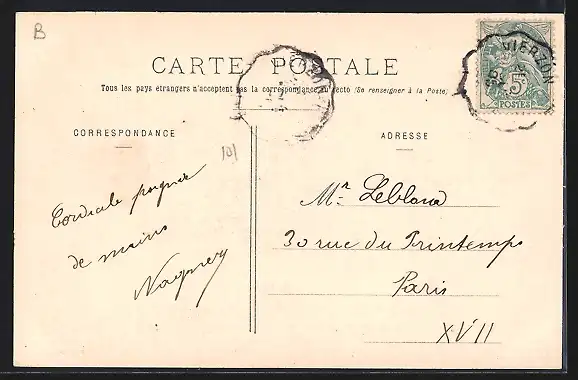 B
CARTE POSTALE
Tous les pays étrangers n'acceptent pas la correspondance au recto (Se renseigner à la Poste)
CORRESPONDANCE
ADRESSE
101
Cordiale poignée
de mains
Mr Leblond
30 rue du Printemps
Paris
XVII
VIERZON
5
POSTES